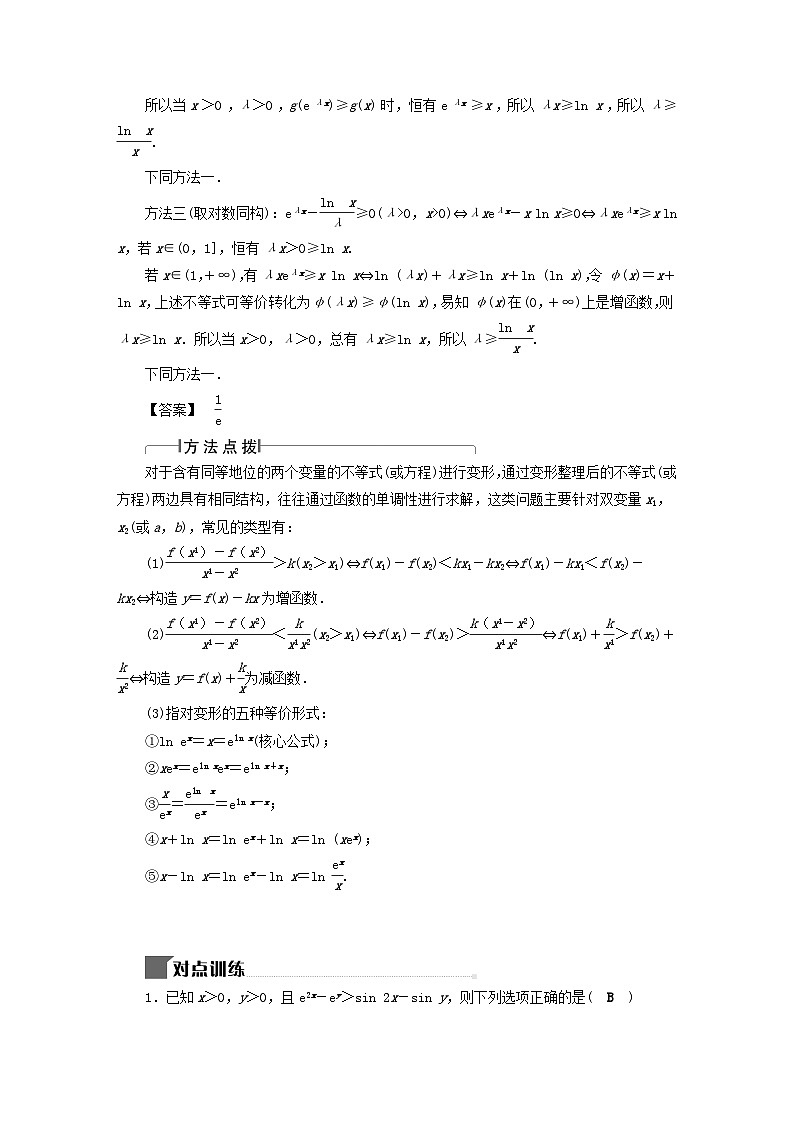 所以当 x＞0，λ＞0，g(e^{λx})≥g(x)时，恒有 e^{λx}≥x，所以 λx≥ln x，所以 λ≥
\frac{ln x}{x}.
下同方法一．
方法三(取对数同构)：e^{λx}－\frac{ln x}{λ}≥0(λ>0，x>0)⇔λxe^{λx}－x ln x≥0⇔λxe^{λx}≥x ln
x，若 x∈(0，1]，恒有 λx＞0≥ln x.
若 x∈(1,＋∞)，有 λxe^{λx}≥x ln x⇔ln (λx)＋λx≥ln x＋ln (ln x)，令 φ(x)＝x＋
ln x，上述不等式可等价转化为 φ(λx)≥φ(ln x)，易知 φ(x)在(0,＋∞)上是增函数，则
λx≥ln x．所以当 x＞0，λ＞0，总有 λx≥ln x，所以 λ≥\frac{ln x}{x}.
下同方法一．
【答案】 \frac{1}{e}
方法点拨
对于含有同等地位的两个变量的不等式(或方程)进行变形，通过变形整理后的不等式(或
方程)两边具有相同结构，往往通过函数的单调性进行求解，这类问题主要针对双变量 x₁，
x₂(或 a，b)，常见的类型有：
(1)\frac{f（x1）－f（x2）}{x1－x2}＞k(x₂＞x₁)⇔f(x₁)－f(x₂)＜kx₁－kx₂⇔f(x₁)－kx₁＜f(x₂)－
kx₂⇔构造 y＝f(x)－kx 为增函数．
(2)\frac{f（x1）－f（x2）}{x1－x2}＜\frac{k}{x1x2}(x₂＞x₁)⇔f(x₁)－f(x₂)＞\frac{k（x1－x2）}{x1x2}⇔f(x₁)＋\frac{k}{x1}＞f(x₂)＋
\frac{k}{x2}⇔构造 y＝f(x)＋\frac{k}{x}为减函数．
(3)指对变形的五种等价形式：
①ln e^{x}＝x＝e^{ln x}(核心公式)；
②xe^{x}＝e^{ln x}e^{x}＝e^{ln x＋x}；
③\frac{x}{e^{x}}＝\frac{e^{ln x}}{e^{x}}＝e^{ln x－x}；
④x＋ln x＝ln e^{x}＋ln x＝ln (xe^{x})；
⑤x－ln x＝ln e^{x}－ln x＝ln \frac{e^{x}}{x}.
对点训练
1．已知 x＞0，y＞0，且 e^{2x}－e^{y}＞sin 2x－sin y，则下列选项正确的是( B )